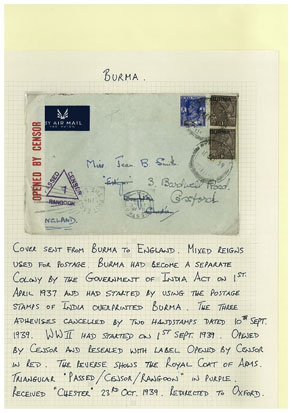 BURMA.
BY AIR MAIL
OPENED BY CENSOR
BURMA
BURMA
Miss Jean B Smith
3, Bardwell Road,
Oxford
PASSED CENSOR
RANGOON
ENGLAND.
COVER SENT FROM BURMA TO ENGLAND. MIXED REIGNS
USED FOR POSTAGE. BURMA HAD BECOME A SEPARATE
COLONY BY THE GOVERNMENT OF INDIA ACT ON 1ST.
APRIL 1937 AND HAD STARTED BY USING THE POSTAGE
STAMPS OF INDIA OVERPRINTED BURMA. THE THREE
ADHESIVES CANCELLED BY TWO HANDSTAMPS DATED 10TH SEPT.
1939. WWII HAD STARTED ON 1ST SEPT. 1939. OPENED
BY CENSOR AND RESEALED WITH LABEL OPENED BY CENSOR
IN RED. THE REVERSE SHOWS THE ROYAL COAT OF ARMS.
TRIANGULAR "PASSED/CENSOR/RANGOON" IN PURPLE.
RECEIVED "CHESTER" 23RD OCT. 1939. REDIRECTED TO OXFORD.